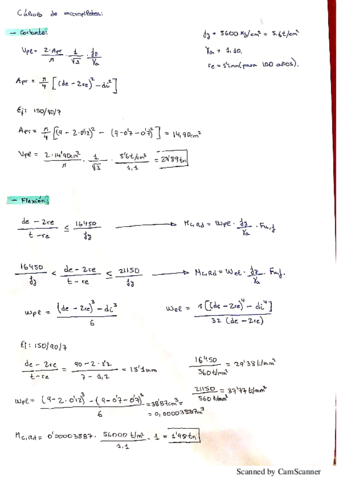 Cálculo de micropilotes:
- Cortante:
fy = 5600 Kg/cm² = 5.6t/cm²
γa = 1.10.
Vpl = 2·Apr/π · 1/√3 · fy/γa
re = (para 100 años).
Apr = π/4 [(de - 2re)² - di²]
Ej: 150/90/7
Apr = π/4 [(9 - 2·0'12)² - (9-0'7-0'7)²] = 14,90cm²
Vpl = 2·14'90cm²/π · 1/√3 · 5'6t/cm²/1,1 =
- Flexión:
de - 2re / t - re ≤ 16450/fy → Mc,Rd = Wpl · fy/γa · Fu,f.
16450/fy < de - 2re / t - re ≤ 21150/fy → Mc,Rd = Wel · fy/γa · Fu,f.
Wpl = (de - 2re)³ - di³ / 6
Wel = π[(de - 2re)⁴ - di⁴] / 32 (de - 2re)
Ej: 150/90/7
de - 2re / t - re = 90 - 2· / 7 - = 13'1mm
16450/560 t/m² = 29'38 t/mm²
21150/560 t/m² = 37'77 t/mm²
Wpl = (9 - 2·0'12)³ - (9-0'7-0'7)³ / 6 = 38'87cm³ =
= 0,00003887m³
Mc,Rd = 0'00003887 · 56000 t/m²/1,1 · 1 = 1'98tn
Scanned by CamScanner